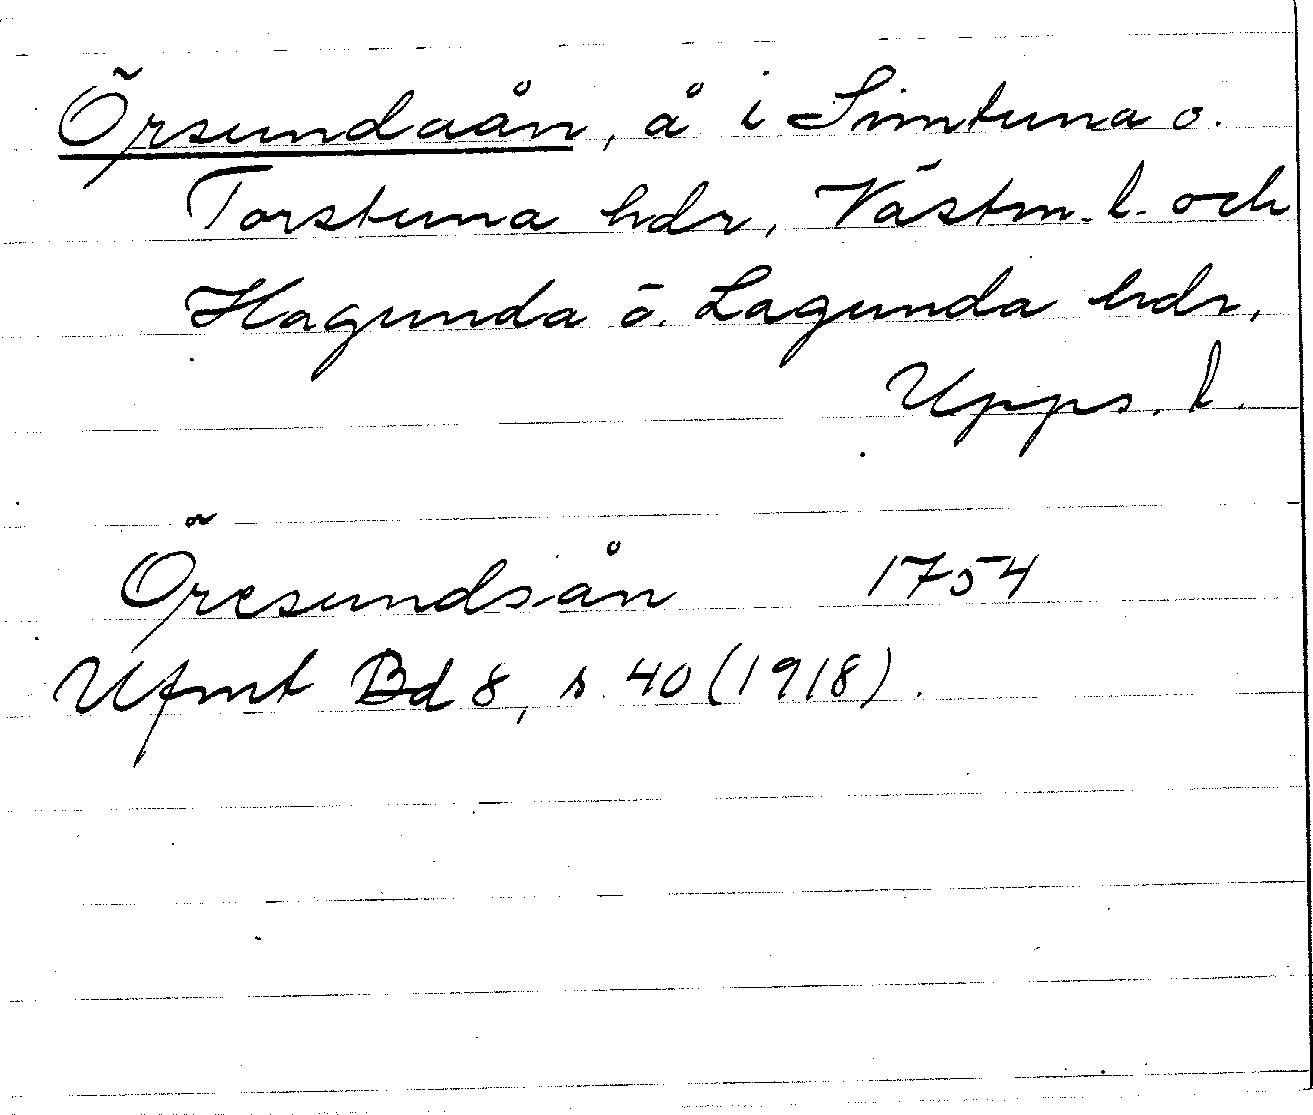 Örsundaån, å i Simtuna o.
Torstuna hdr, Västm. l. och
Hagunda o. Lagunda hdr,
Upps. l.
Öresundsån 1754
Ufmt Bd 8, s. 40 (1918).